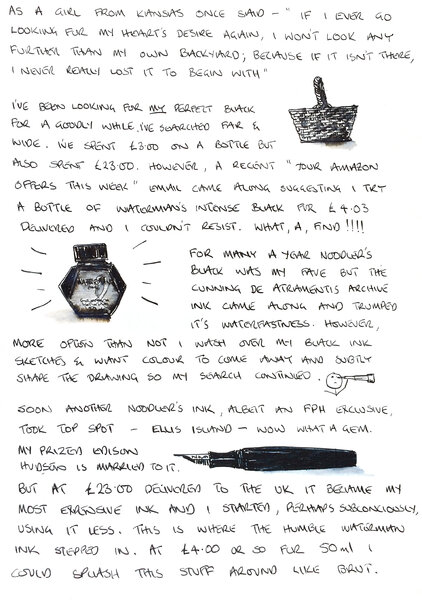 AS A GIRL FROM KANSAS ONCE SAID - "IF I EVER GO
LOOKING FUR MY HEART'S DESIRE AGAIN, I WON'T LOOK ANY
FURTHER THAN MY OWN BACKYARD; BECAUSE IF IT ISN'T THERE,
I NEVER REALLY LOST IT TO BEGIN WITH"
I'VE BEEN LOOKING FOR MY PERFECT BLACK
FOR A GOODLY WHILE. I'VE SEARCHED FAR &
WIDE. I'VE SPENT £3.00 ON A BOTTLE BUT
ALSO SPENT £23.00. HOWEVER, A RECENT "YOUR AMAZON
OFFERS THIS WEEK" EMAIL CAME ALONG SUGGESTING I TRY
A BOTTLE OF WATERMAN'S INTENSE BLACK FUR £4.03
DELIVERED AND I COULDN'T RESIST. WHAT, A, FIND!!!!
FOR MANY A YEAR NOODLER'S
BLACK WAS MY FAVE BUT THE
CUNNING DE ATRAMENTIS ARCHIVE
INK CAME ALONG AND TRUMPED
IT'S WATERFASTNESS. HOWEVER,
MORE OFTEN THAN NOT I WASH OVER MY BLACK INK
SKETCHES & WANT COLOUR TO COME AWAY AND SUBTLY
SHAPE THE DRAWING SO MY SEARCH CONTINUED.
SOON ANOTHER NOODLER'S INK, ALBEIT AN FPH EXCLUSIVE,
TOOK TOP SPOT - ELLIS ISLAND - WOW WHAT A GEM.
MY PRIZED EDISON
HUDSON IS MARRIED TO IT.
BUT AT £23.00 DELIVERED TO THE UK IT BECAME MY
MOST EXPENSIVE INK AND I STARTED, PERHAPS SUBCONCIOUSLY,
USING IT LESS. THIS IS WHERE THE HUMBLE WATERMAN
INK STEPPED IN. AT £4.00 OR SO FUR 50ml I
COULD SPLASH THIS STUFF AROUND LIKE BRUT.